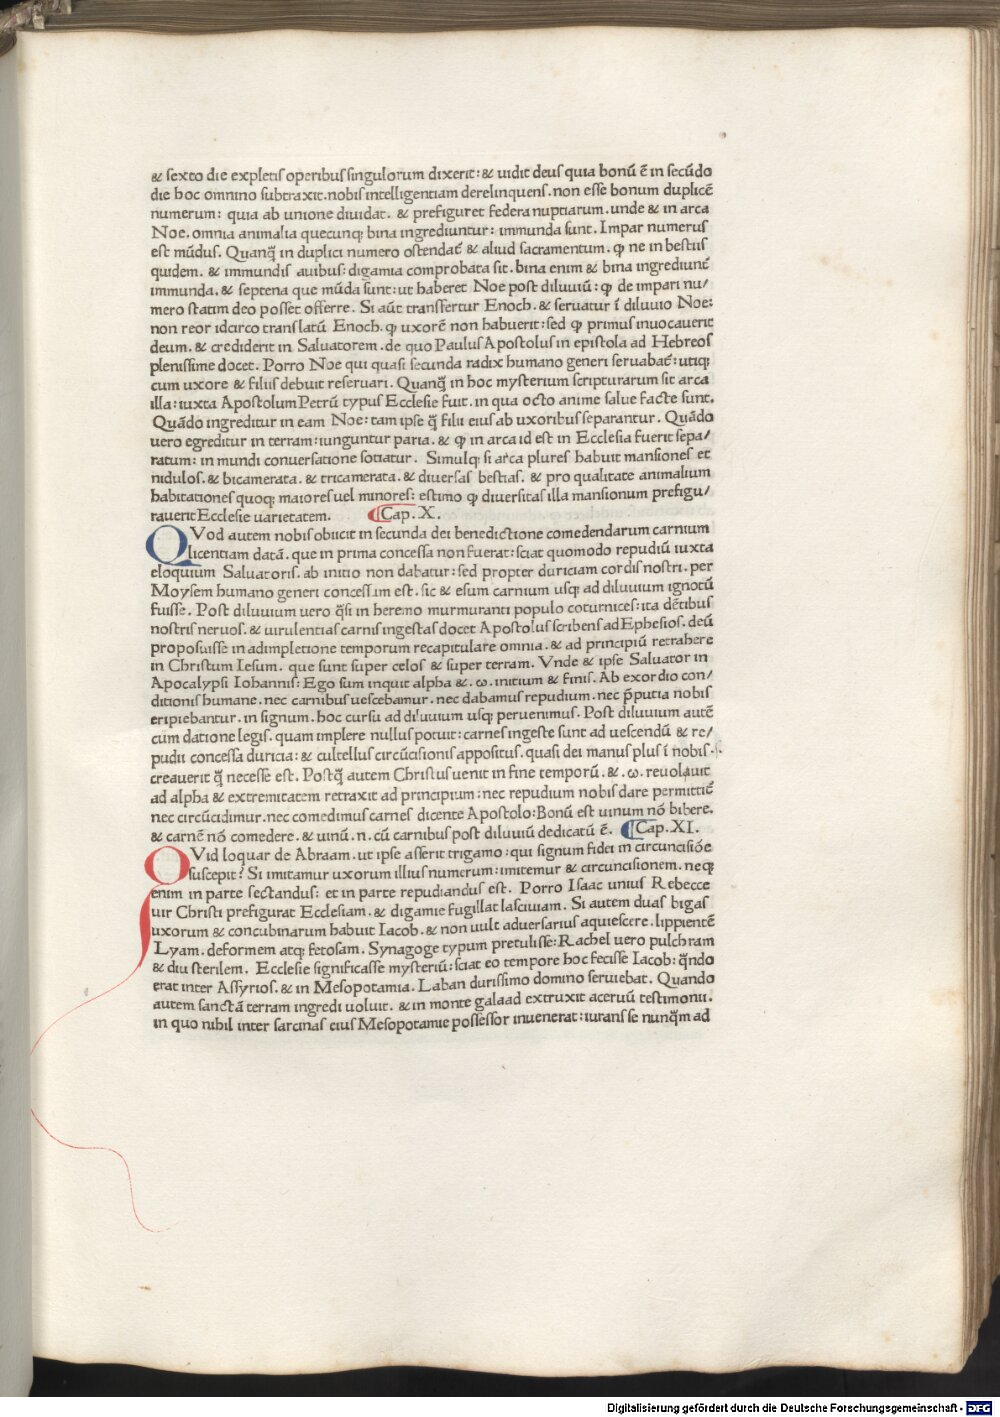 & sexto die expletis operibus singulorum dixerit: & uidit deus quia bonū ē in secūdo
die hoc omnino subtraxit. nobis intelligentiam derelinquens. non esse bonum duplicē
numerum: quia ab unione diuidat. & prefiguret federa nuptiarum. unde & in arca
Noe. omnia animalia quecunq; bina ingrediuntur: immunda sunt. Impar numerus
est mūdus. Quanq̄ in duplici numero ostendat̄ & aliud sacramentum. ꝙ ne in bestiis
quidem. & immundis auibus: digamia comprobata sit. bina enim & bina ingrediunt̄
immunda. & septena que mūda sunt: ut haberet Noe post diluuiū: ꝙ de impari nu/
mero statim deo posset offerre. Si aūt transfertur Enoch. & seruatur ī diluuio Noe:
non reor idcirco translatū Enoch. ꝙ uxorē non habuerit: sed ꝙ primus inuocauerit
deum. & crediderit in Saluatorem. de quo Paulus Apostolus in epistola ad Hebreos
plenissime docet. Porro Noe qui quasi secunda radix humano generi seruabat̄: utiq;
cum uxore & filiis debuit reseruari. Quanq̄ in hoc mysterium scripturarum sit arca
illa: iuxta Apostolum Petrū typus Ecclesie fuit. in qua octo anime salue facte sunt.
Quādo ingreditur in eam Noe: tam ipse q̄ filii eius ab uxoribus separantur. Quādo
uero egreditur in terram: iunguntur paria. & ꝙ in arca id est in Ecclesia fuerit sepa/
ratum: in mundi conuersatione sotiatur. Simulq; si arca plures habuit mansiones et
nidulos. & bicamerata. & tricamerata. & diuersas bestias. & pro qualitate animalium
habitationes quoq; maiores uel minores: estimo ꝙ diuersitas illa mansionum prefigu/
rauerit Ecclesie uarietatem. ⸿Cap. X.
QVod autem nobis obiicit in secunda dei benedictione comedendarum carnium
licentiam datā. que in prima concessa non fuerat: sciat quomodo repudiū iuxta
eloquium Saluatoris. ab initio non dabatur: sed propter duriciam cordis nostri. per
Moysem humano generi concessum est. sic & esum carnium usq; ad diluuium ignotū
fuisse. Post diluuium uero q̄si in heremo murmuranti populo coturnices: ita dētibus
nostris neruos. & uirulentias carnis ingestas docet Apostolus scribens ad Ephesios. deū
proposuisse in adimpletione temporum recapitulare omnia. & ad principiū retrahere
in Christum Iesum. que sunt super celos & super terram. Vnde & ipse Saluator in
Apocalypsi Iohannis: Ego sum inquit alpha & .ω. initium & finis. Ab exordio con/
ditionis humane. nec carnibus uescebamur. nec dabamus repudium. nec p̄putia nobis
eripiebantur. in signum. hoc cursu ad diluuium usq; peruenimus. Post diluuium autē
cum datione legis. quam implere nullus potuit: carnes ingeste sunt ad uescendū & re/
pudii concessa duricia: & cultellus circūcisionis appositus. quasi dei manus plus ī nobis
creauerit q̄ necesse est. Postq̄ autem Christus uenit in fine temporū. & .ω. reuolauit
ad alpha & extremitatem retraxit ad principium: nec repudium nobis dare permittit̄
nec circūcidimur. nec comedimus carnes dicente Apostolo: Bonū est uinum nō bibere.
& carnē nō comedere. & uinū .n. cū carnibus post diluuiū dedicatū ē. ⸿Cap. XI.
QVid loquar de Abraam. ut ipse asserit trigamo: qui signum fidei in circuncisiōe
suscepit? Si imitamur uxorum illius numerum: imitemur & circuncisionem. neq;
enim in parte sectandus: et in parte repudiandus est. Porro Isaac unius Rebecce
uir Christi prefigurat Ecclesiam. & digamie fugillat lasciuiam. Si autem duas bigas
uxorum & concubinarum habuit Iacob. & non uult aduersarius aquiescere. lippientē
Lyam. deformem atq; fetosam. Synagoge typum pretulisse: Rachel uero pulchram
& diu sterilem. Ecclesie significasse mysteriū: sciat eo tempore hoc fecisse Iacob: q̄ndo
erat inter Assyrios. & in Mesopotamia. Laban durissimo domino seruiebat. Quando
autem sanctā terram ingredi uoluit. & in monte galaad extruxit aceruū testimonii.
in quo nihil inter sarcinas eius Mesopotamie possessor inuenerat: iurans se nunq̄m ad
Digitalisierung gefördert durch die Deutsche Forschungsgemeinschaft - DFG